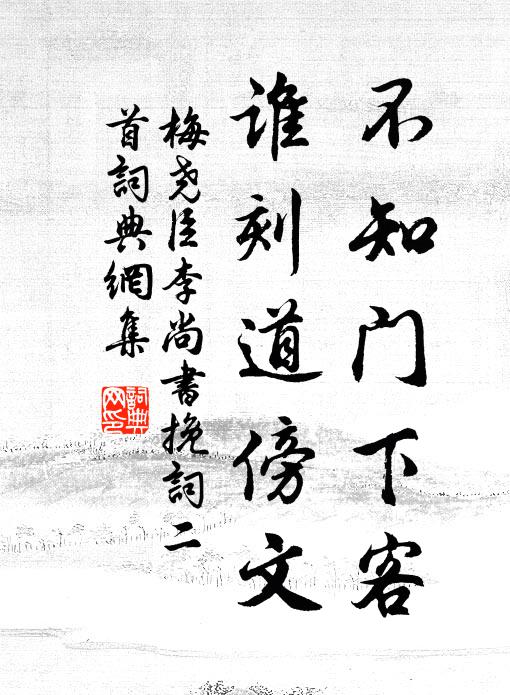 不知门下客
谁刻道傍文
梅尧臣李尚書挽詞二
首詞典網集
詞典
网印